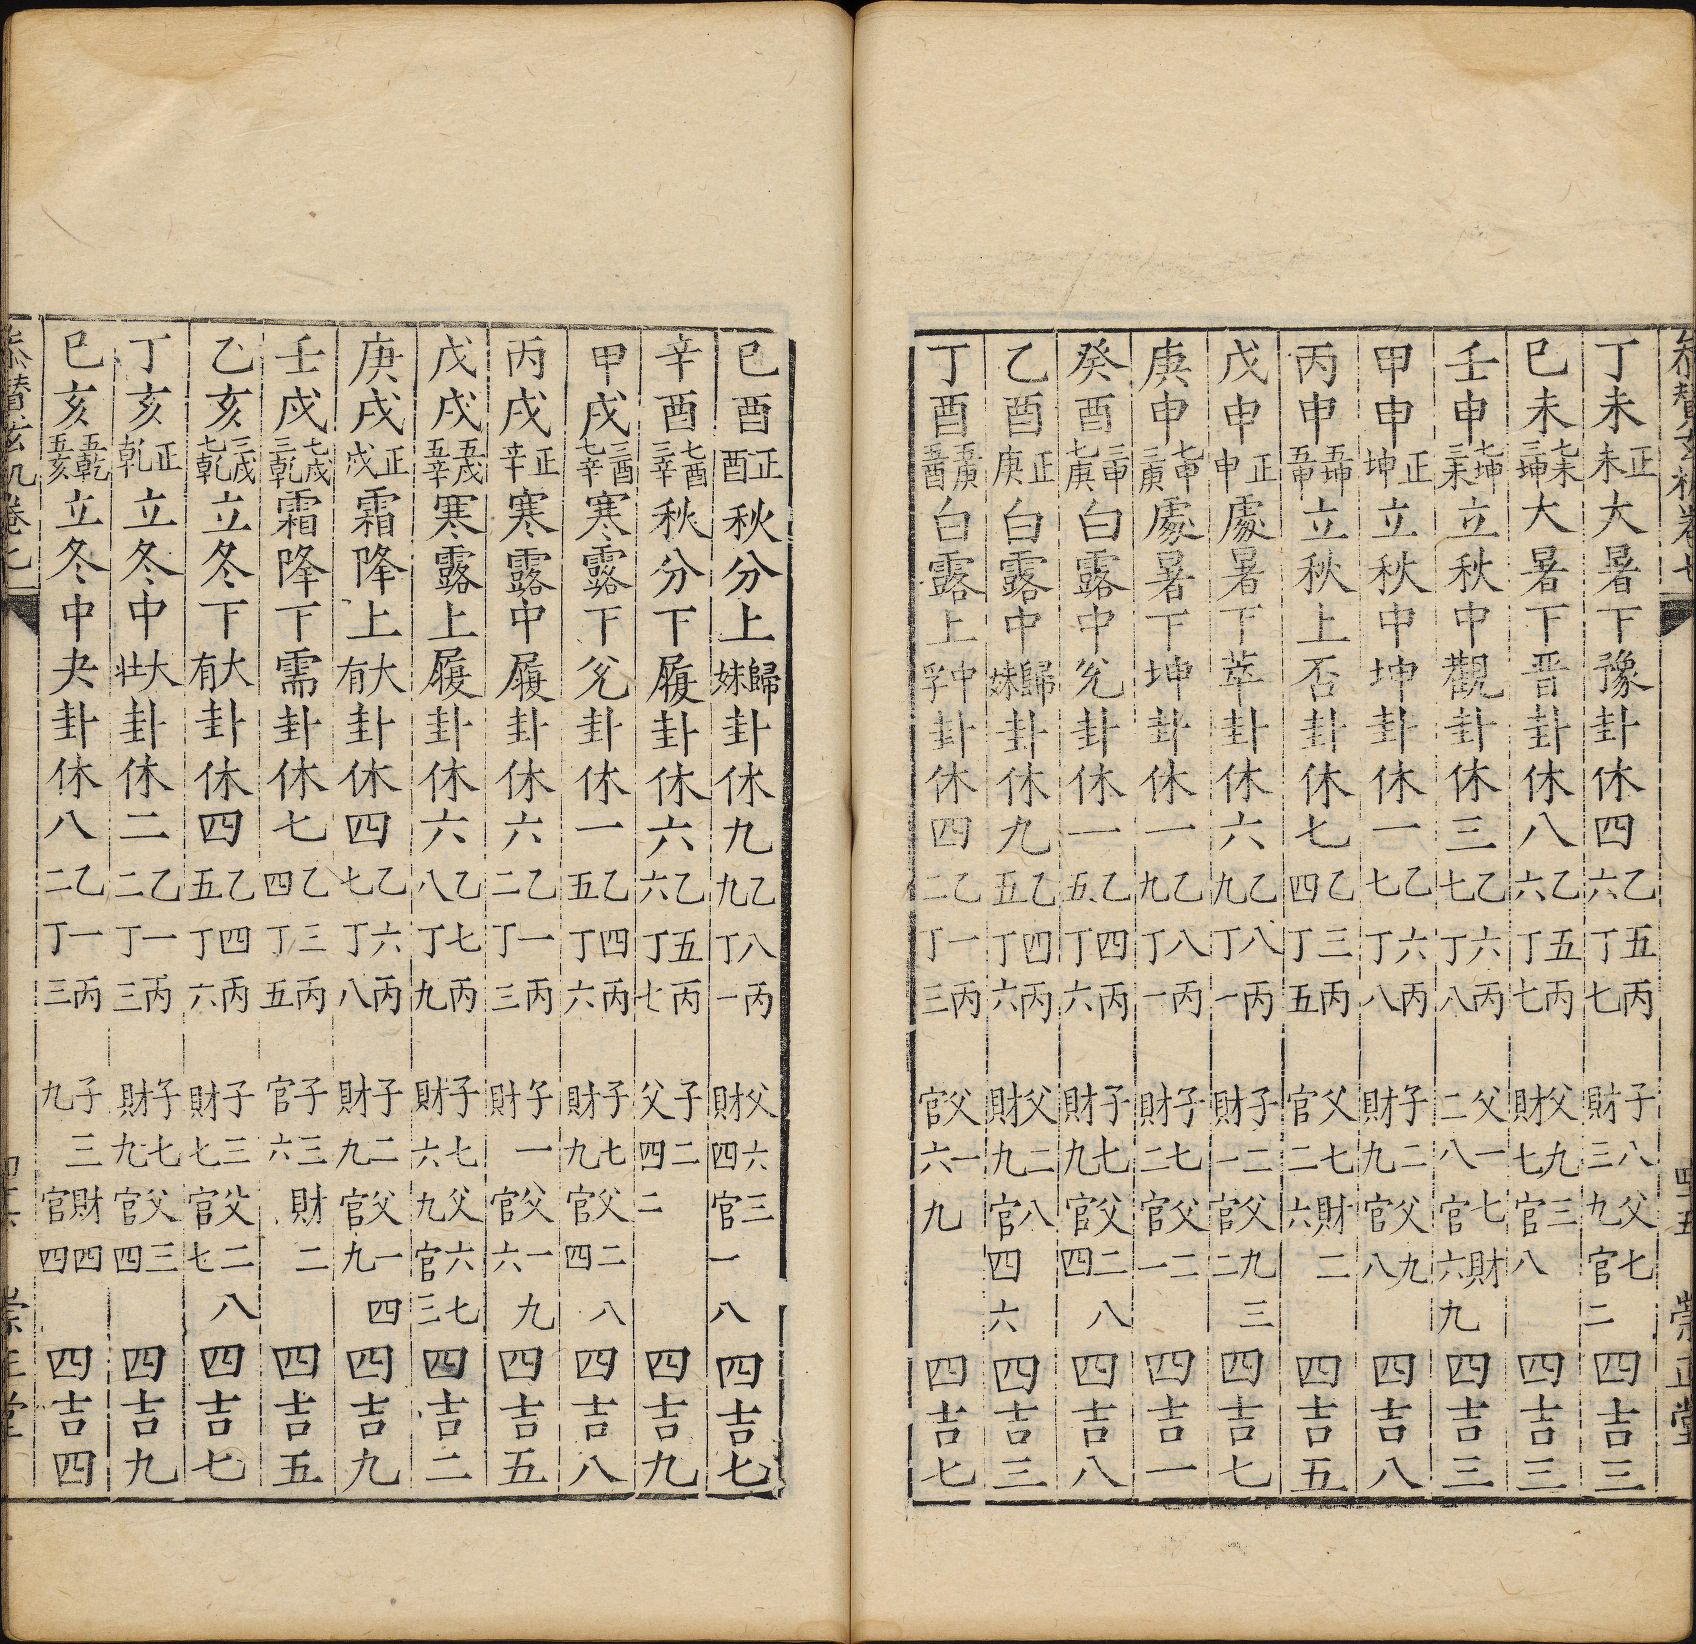 叅賛玄機卷七 四五 崇正堂
丁未正未大暑下豫卦休四乙五丙六丁七 子八父七財三九官二 四吉三
巳未七未三坤大暑下晋卦休八乙五丙六丁七 父九三財七官八 四吉三
壬申七坤三未立秋中觀卦休三乙六丙七丁八 父一七財二八官六九 四吉三
甲申正坤立秋中坤卦休一乙六丙七丁八 子二父九財九官八 四吉八
丙申五坤五申立秋上否卦休七乙三丙四丁五 父七財二官二六 四吉五
戊申正申處暑下萃卦休六乙八丙九丁一 子二父九三財一官二 四吉七
庚申七申三庚處暑下坤卦休一乙八丙九丁一 子七父二財二官一 四吉一
癸酉三申七庚白露中兌卦休一乙四丙五丁六 子七父二八財九官四 四吉八
乙酉正庚白露中歸妹卦休九乙四丙五丁六 父二八財九官四六 四吉三
丁酉五庚五酉白露上中孚卦休四乙一丙二丁三 父一官六九 四吉七
巳酉正酉秋分上歸妹卦休九乙八丙九丁一 父六三財四官一八 四吉七
辛酉七酉三辛秋分下履卦休六乙五丙六丁七 子二父四二 四吉九
甲戌三酉七辛寒露下兌卦休一乙四丙五丁六 子七父二八財九官四 四吉八
丙戌正辛寒露中履卦休六乙一丙二丁三 子一父一九財官六 四吉五
戊戌五戌五辛寒露上履卦休六乙七丙八丁九 子七父六七財六九官三 四吉二
庚戌正戌霜降上大有卦休四乙六丙七丁八 子二父一四財九官九 四吉九
壬戌七戌三乾霜降下需卦休七乙三丙四丁五 子三財二官六 四吉五
乙亥三戌七乾立冬下大有卦休四乙四丙五丁六 子三父二八財七官七 四吉七
丁亥正乾立冬中大壯卦休二乙一丙二丁三 子七父三財九官四 四吉九
巳亥五乾五亥立冬中夬卦休八乙一丙二丁三 子三財四九官四 四吉四
叅賛玄機卷七